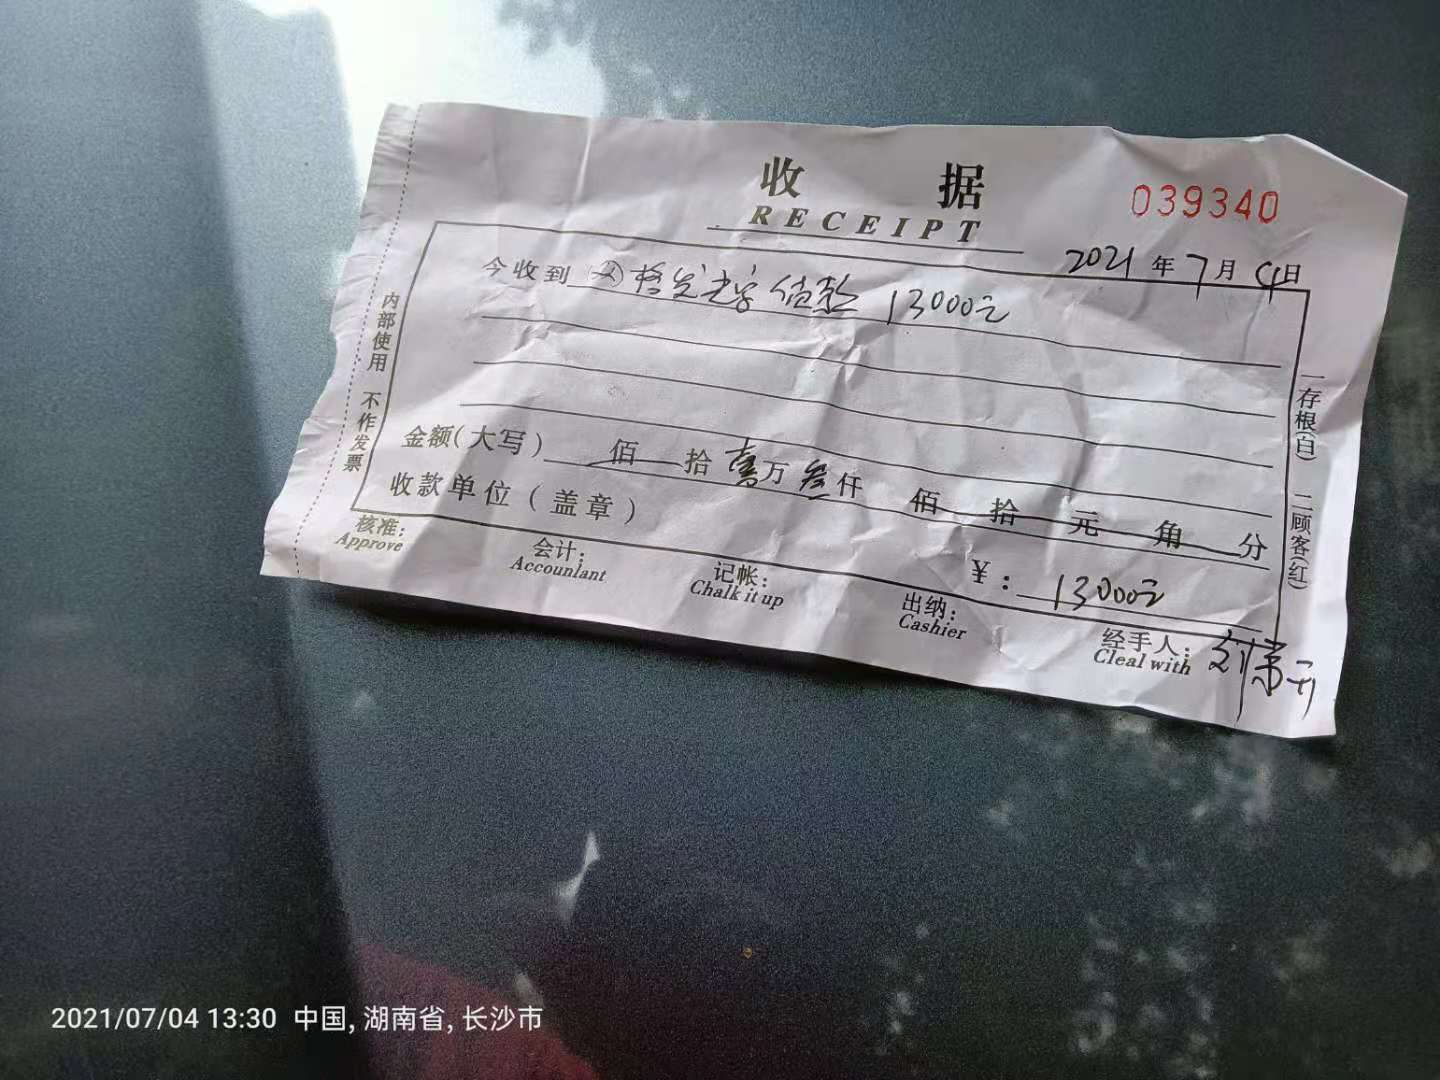 收 据
RECEIPT
039340
2021 年 7 月 4 日
今收到 货款 13000元
金额(大写) 佰 拾 壹 万 叁 仟 佰 拾 元 角 分
收款单位（盖章）
¥: 13000元
核准:
Approve
会计:
Accountant
记帐:
Chalk it up
出纳:
Cashier
经手人:
Cleal with
内部使用 不作发票
一存根(白) 二顾客(红)
2021/07/04 13:30 中国, 湖南省, 长沙市